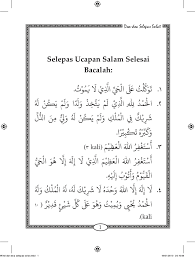 Doa dan Selepas Solat
Selepas Ucapan Salam Selesai
Bacalah:
١. تَوَكَّلْتُ عَلَى الْحَيِّ الَّذِي لَا يَمُوْتُ.
٢. الْحَمْدُ لِلَّهِ الَّذِي لَمْ يَتَّخِذْ وَلَدًا وَلَمْ يَكُنْ لَهُ
شَرِيْكٌ فِي الْمُلْكِ وَلَمْ يَكُنْ لَهُ وَلِيٌّ مِنَ الذُّلِّ
وَكَبِّرْهُ تَكْبِيْرًا.
٣. أَسْتَغْفِرُ اللهَ الْعَظِيْمَ (٣ kali)
أَسْتَغْفِرُ اللهَ الْعَظِيْمَ الَّذِي لَا إِلَهَ إِلَّا هُوَ الْحَيُّ
الْقَيُّوْمُ وَأَتُوْبُ إِلَيْهِ.
٤. لَا إِلَهَ إِلَّا اللهُ وَحْدَهُ لَا شَرِيْكَ لَهُ، لَهُ الْمُلْكُ وَلَهُ
الْحَمْدُ يُحْيِي وَيُمِيْتُ وَهُوَ عَلَى كُلِّ شَيْءٍ قَدِيْرٌ
kali)
1